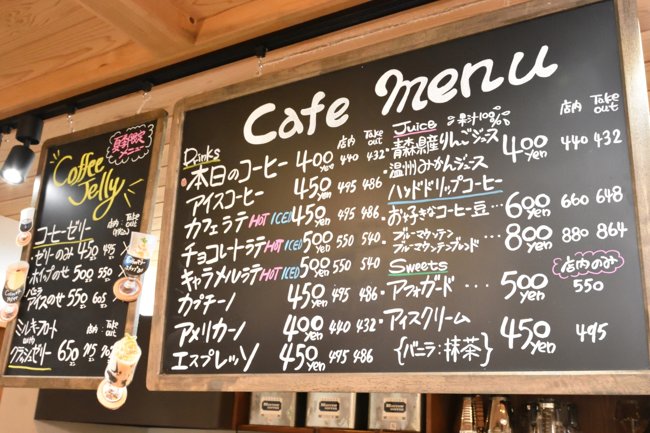 夏季限定
メニュー
Coffee
Jelly
店内 Take out
コーヒーゼリー
ゼリーのみ 450 495
ホイップのせ 500 550
バニラ
アイスのせ 550 605
店内 Take out
ミルキーフロート
with
クラッシュゼリー 650
Cafe menu
Drinks 店内 Take out
・本日のコーヒー 400 yen 440 432
アイスコーヒー 450 yen 495 486
カフェラテ HOT ICED 450 yen 495 486
チョコレートラテ HOT ICED 500 yen 550 540
キャラメルラテ HOT ICED 500 yen 550 540
カプチーノ 450 yen 495 486
アメリカーノ 400 yen 440 432
エスプレッソ 450 yen 495 486
Juice 果汁100% 店内 Take out
・青森県産りんごジュース
・温州みかんジュース 400 yen 440 432
ハンドドリップコーヒー
・お好きなコーヒー豆… 600 yen 660 648
・ブルーマウンテン
ブルーマウンテンブレンド … 800 yen 880 864
Sweets 店内のみ
・アフォガード… 500 yen 550
・アイスクリーム 450 yen 495
{バニラ・抹茶}